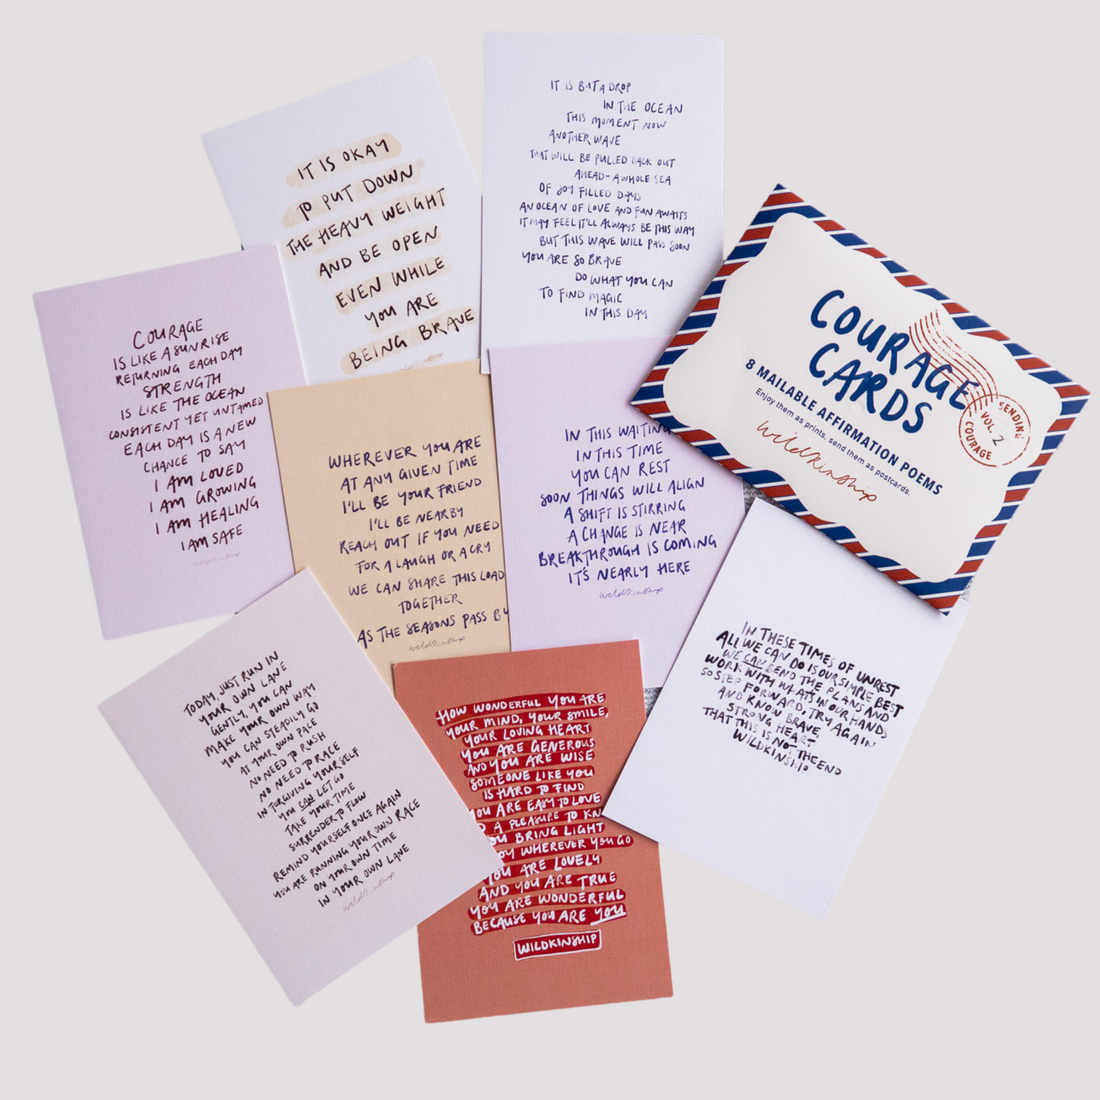 IT IS OKAY
TO PUT DOWN
THE HEAVY WEIGHT
AND BE OPEN
EVEN WHILE
YOU ARE
BEING BRAVE
IT IS BUT A DROP
IN THE OCEAN
THIS MOMENT NOW
ANOTHER WAVE
THAT WILL BE PULLED BACK OUT
AHEAD - A WHOLE SEA
OF JOY FILLED DAYS
AN OCEAN OF LOVE AND FUN AWAITS
IT MAY FEEL IT'LL ALWAYS BE THIS WAY
BUT THIS WAVE WILL PASS SOON
YOU ARE SO BRAVE
DO WHAT YOU CAN
TO FIND MAGIC
IN THIS DAY
COURAGE
CARDS
8 MAILABLE AFFIRMATION POEMS
Enjoy them as prints, send them as postcards.
wildkinship
SENDING
VOL 2
COURAGE
COURAGE
IS LIKE A SUNRISE
RETURNING EACH DAY
STRENGTH
IS LIKE THE OCEAN
CONSISTENT YET UNTAMED
EACH DAY IS A NEW
CHANCE TO SAY
I AM LOVED
I AM GROWING
I AM HEALING
I AM SAFE
wildkinship
WHEREVER YOU ARE
AT ANY GIVEN TIME
I'LL BE YOUR FRIEND
I'LL BE NEARBY
REACH OUT IF YOU NEED
FOR A LAUGH OR A CRY
WE CAN SHARE THIS LOAD
TOGETHER
AS THE SEASONS PASS BY
wildkinship
IN THIS WAITING
IN THIS TIME
YOU CAN REST
SOON THINGS WILL ALIGN
A SHIFT IS STIRRING
A CHANGE IS NEAR
BREAKTHROUGH IS COMING
IT'S NEARLY HERE
wildkinship
TODAY, JUST RUN IN
YOUR OWN LANE
GENTLY, YOU CAN
MAKE YOUR OWN WAY
YOU CAN STEADILY GO
AT YOUR OWN PACE
NO NEED TO RUSH
NO NEED TO RACE
IN FORGIVING YOURSELF
YOU CAN LET GO
TAKE YOUR TIME
SURRENDER TO FLOW
REMIND YOURSELF ONCE AGAIN
YOU ARE RUNNING YOUR OWN RACE
ON YOUR OWN TIME
IN YOUR OWN LANE
wildkinship
HOW WONDERFUL YOU ARE
YOUR MIND, YOUR SMILE,
YOUR LOVING HEART
YOU ARE GENEROUS
AND YOU ARE WISE
SOMEONE LIKE YOU
IS HARD TO FIND
YOU ARE EASY TO LOVE
A PLEASURE TO
YOU BRING LIGHT
WHEREVER YOU GO
YOU ARE LOVELY
AND YOU ARE TRUE
YOU ARE WONDERFUL
BECAUSE YOU ARE YOU
WILDKINSHIP
IN THESE TIMES OF UNREST
ALL WE CAN DO IS OUR SIMPLE BEST
WE CAN BEND THE PLANS AND
WORK WITH WHAT'S IN OUR HANDS
SO STEP FORWARD, TRY AGAIN
AND KNOW BRAVE
STRONG HEART
THAT THIS IS NOT THE END
WILDKINSHIP